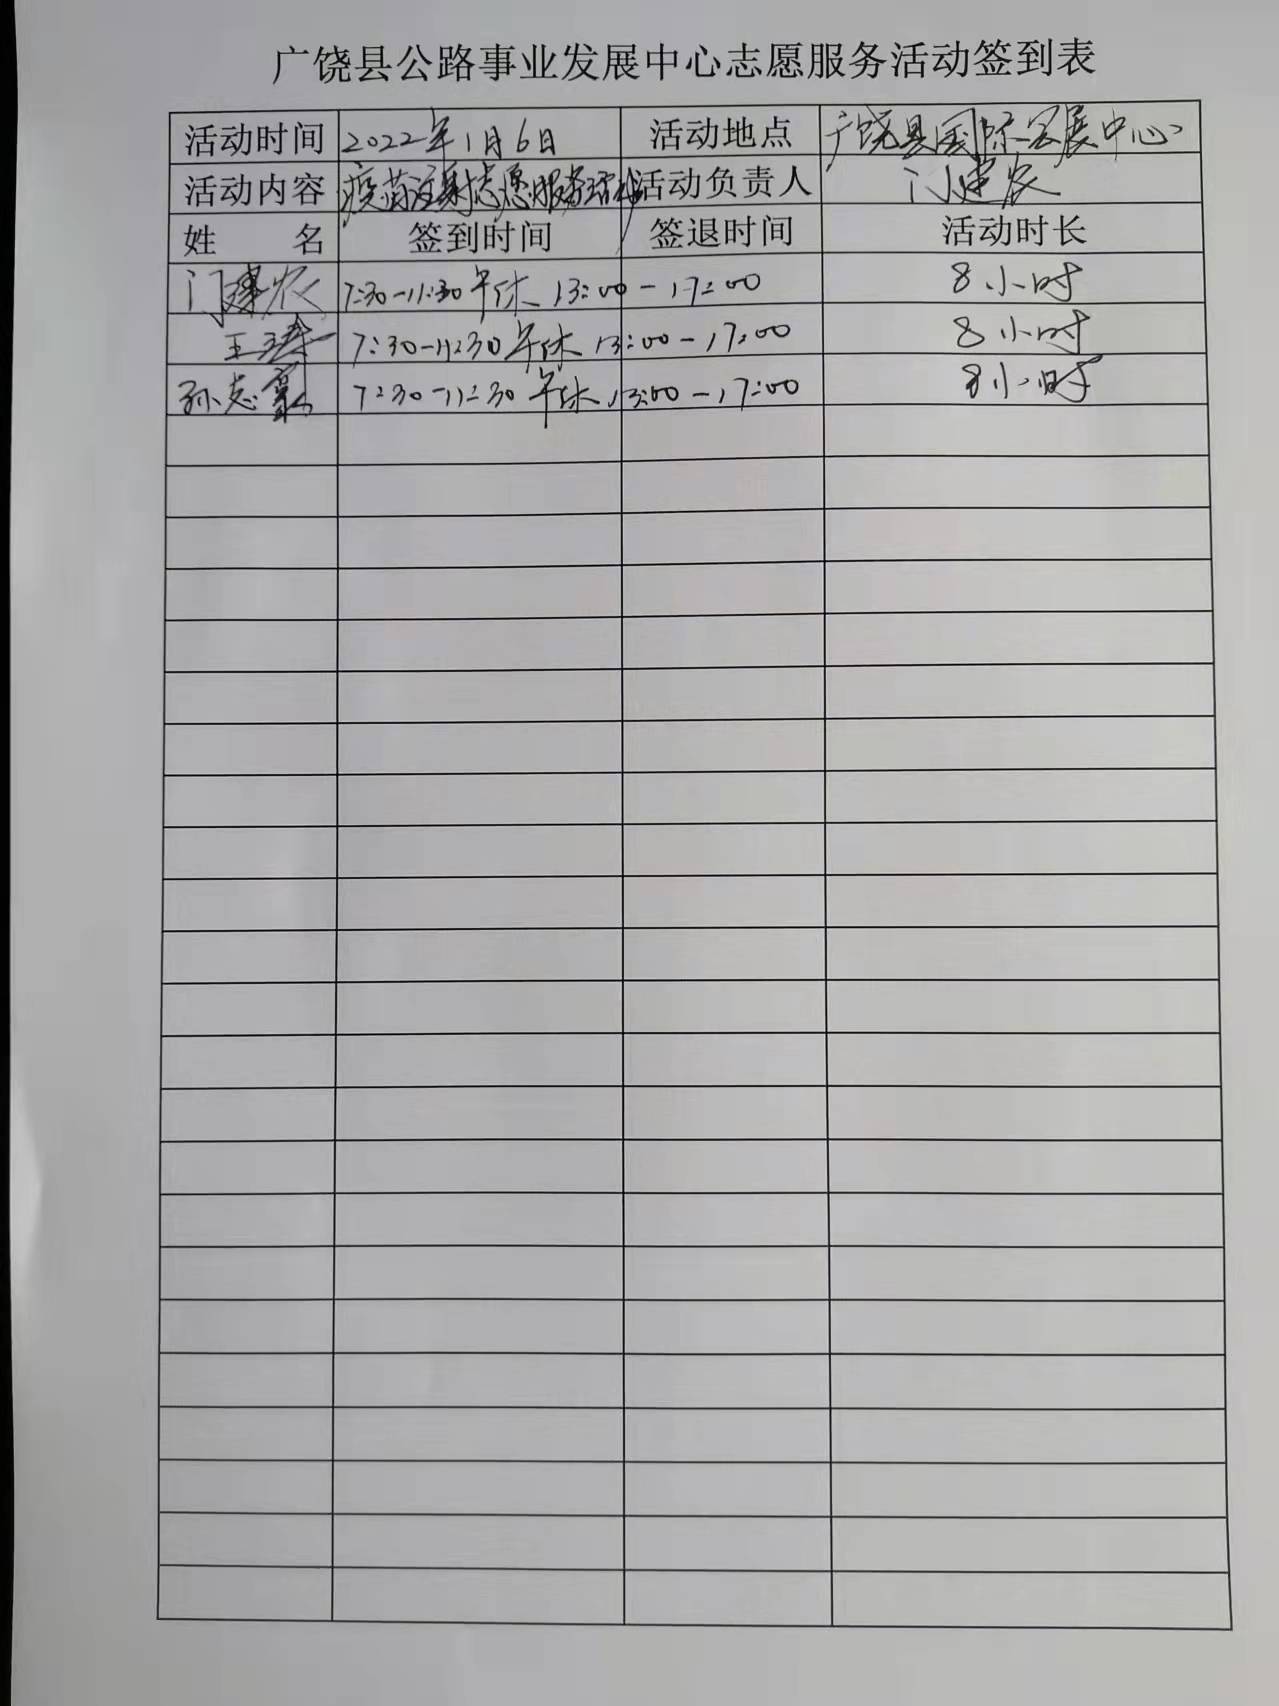 广饶县公路事业发展中心志愿服务活动签到表
活动时间 2022年1月6日 活动地点 广饶县国际会展中心
活动内容 疫苗注射志愿服务活动 活动负责人 门建农
姓 名 签到时间 签退时间 活动时长
门建农 7:30-11:30 午休 13:00-17:00 8小时
王 7:30-11:30 午休 13:00-17:00 8小时
孙志 7:30-11:30 午休 13:00-17:00 8小时